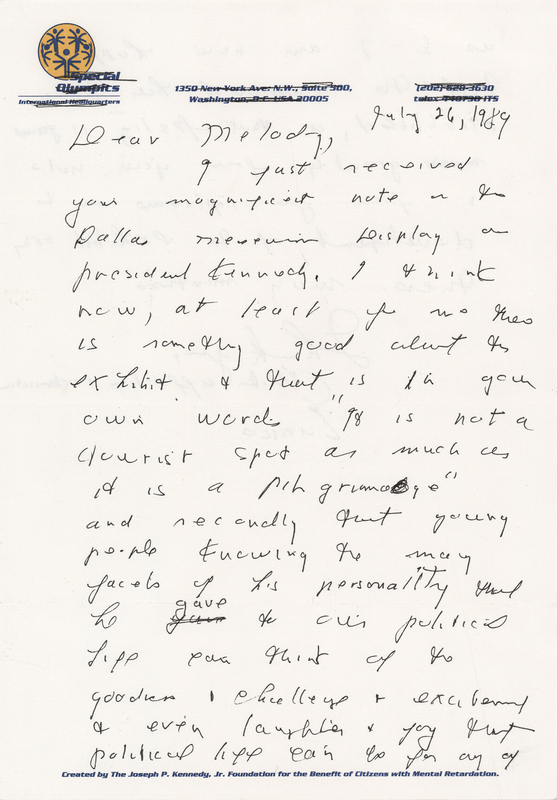 Special
Olympics
International Headquarters
1350 New York Ave. N.W., Suite 500,
Washington, D.C. USA 20005
(202) 628-3630
telex 440730 ITS
July 26, 1989
Dear Melody,
I just received
your magnificent note on the
Dallas museum Display on
president Kennedy. I think
now, at least for me there
is something good about the
exhibit & that is in your
own words "It is not a
tourist spot as much as
it is a pilgrimage"
and secondly that young
people knowing the many
facets of his personality that
he gave to our political
life can think of the
goodness, challenge & excitement
& even laughter & joy that
political life can be for any of
Created by The Joseph P. Kennedy, Jr. Foundation for the Benefit of Citizens with Mental Retardation.